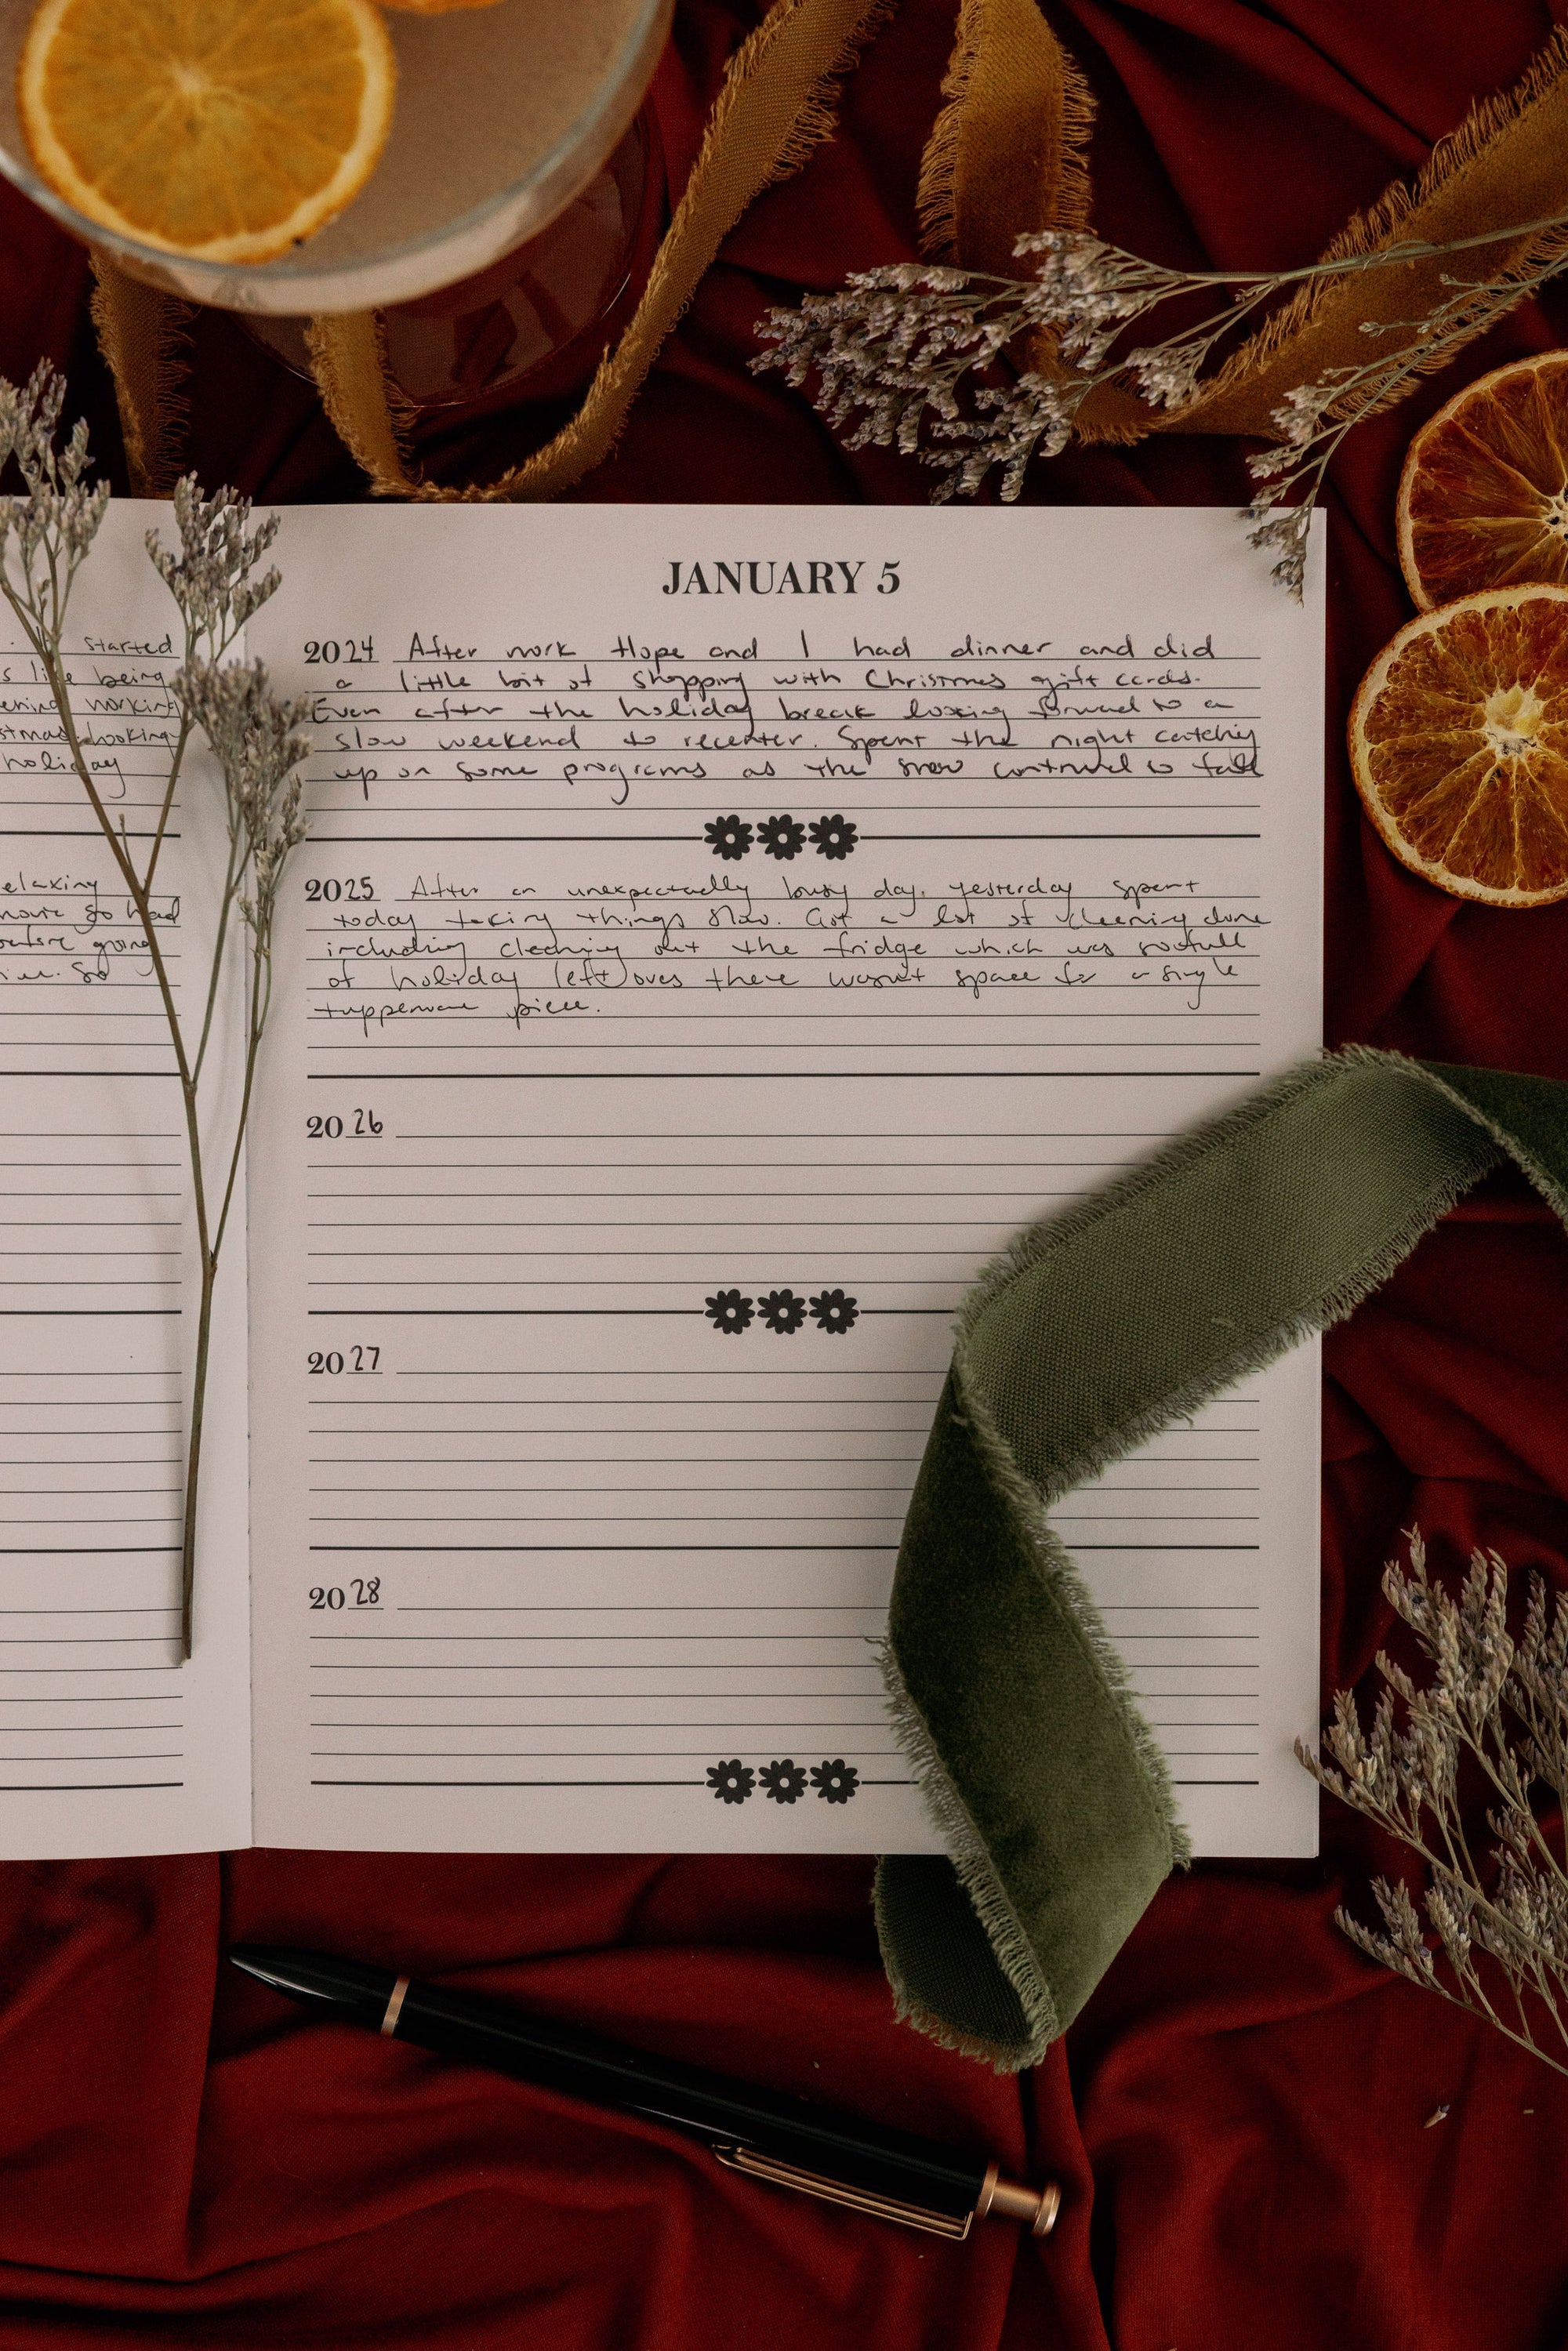 started
being
working
holiday
JANUARY 5
2024 After work Hope and I had dinner and did
a little bit of shopping with Christmas gift cards.
Even after the holiday break looking forward to a
slow weekend to recenter. Spent the night catching
up on some programs as the snow continued to fall
2025 After an unexpectadly busy day, yesterday spent
today taking things slow. Got a lot of cleaning done
including cleaning out the fridge which was so full
of holiday left overs there wasn't space for a single
tupperware piece.
2026
2027
2028